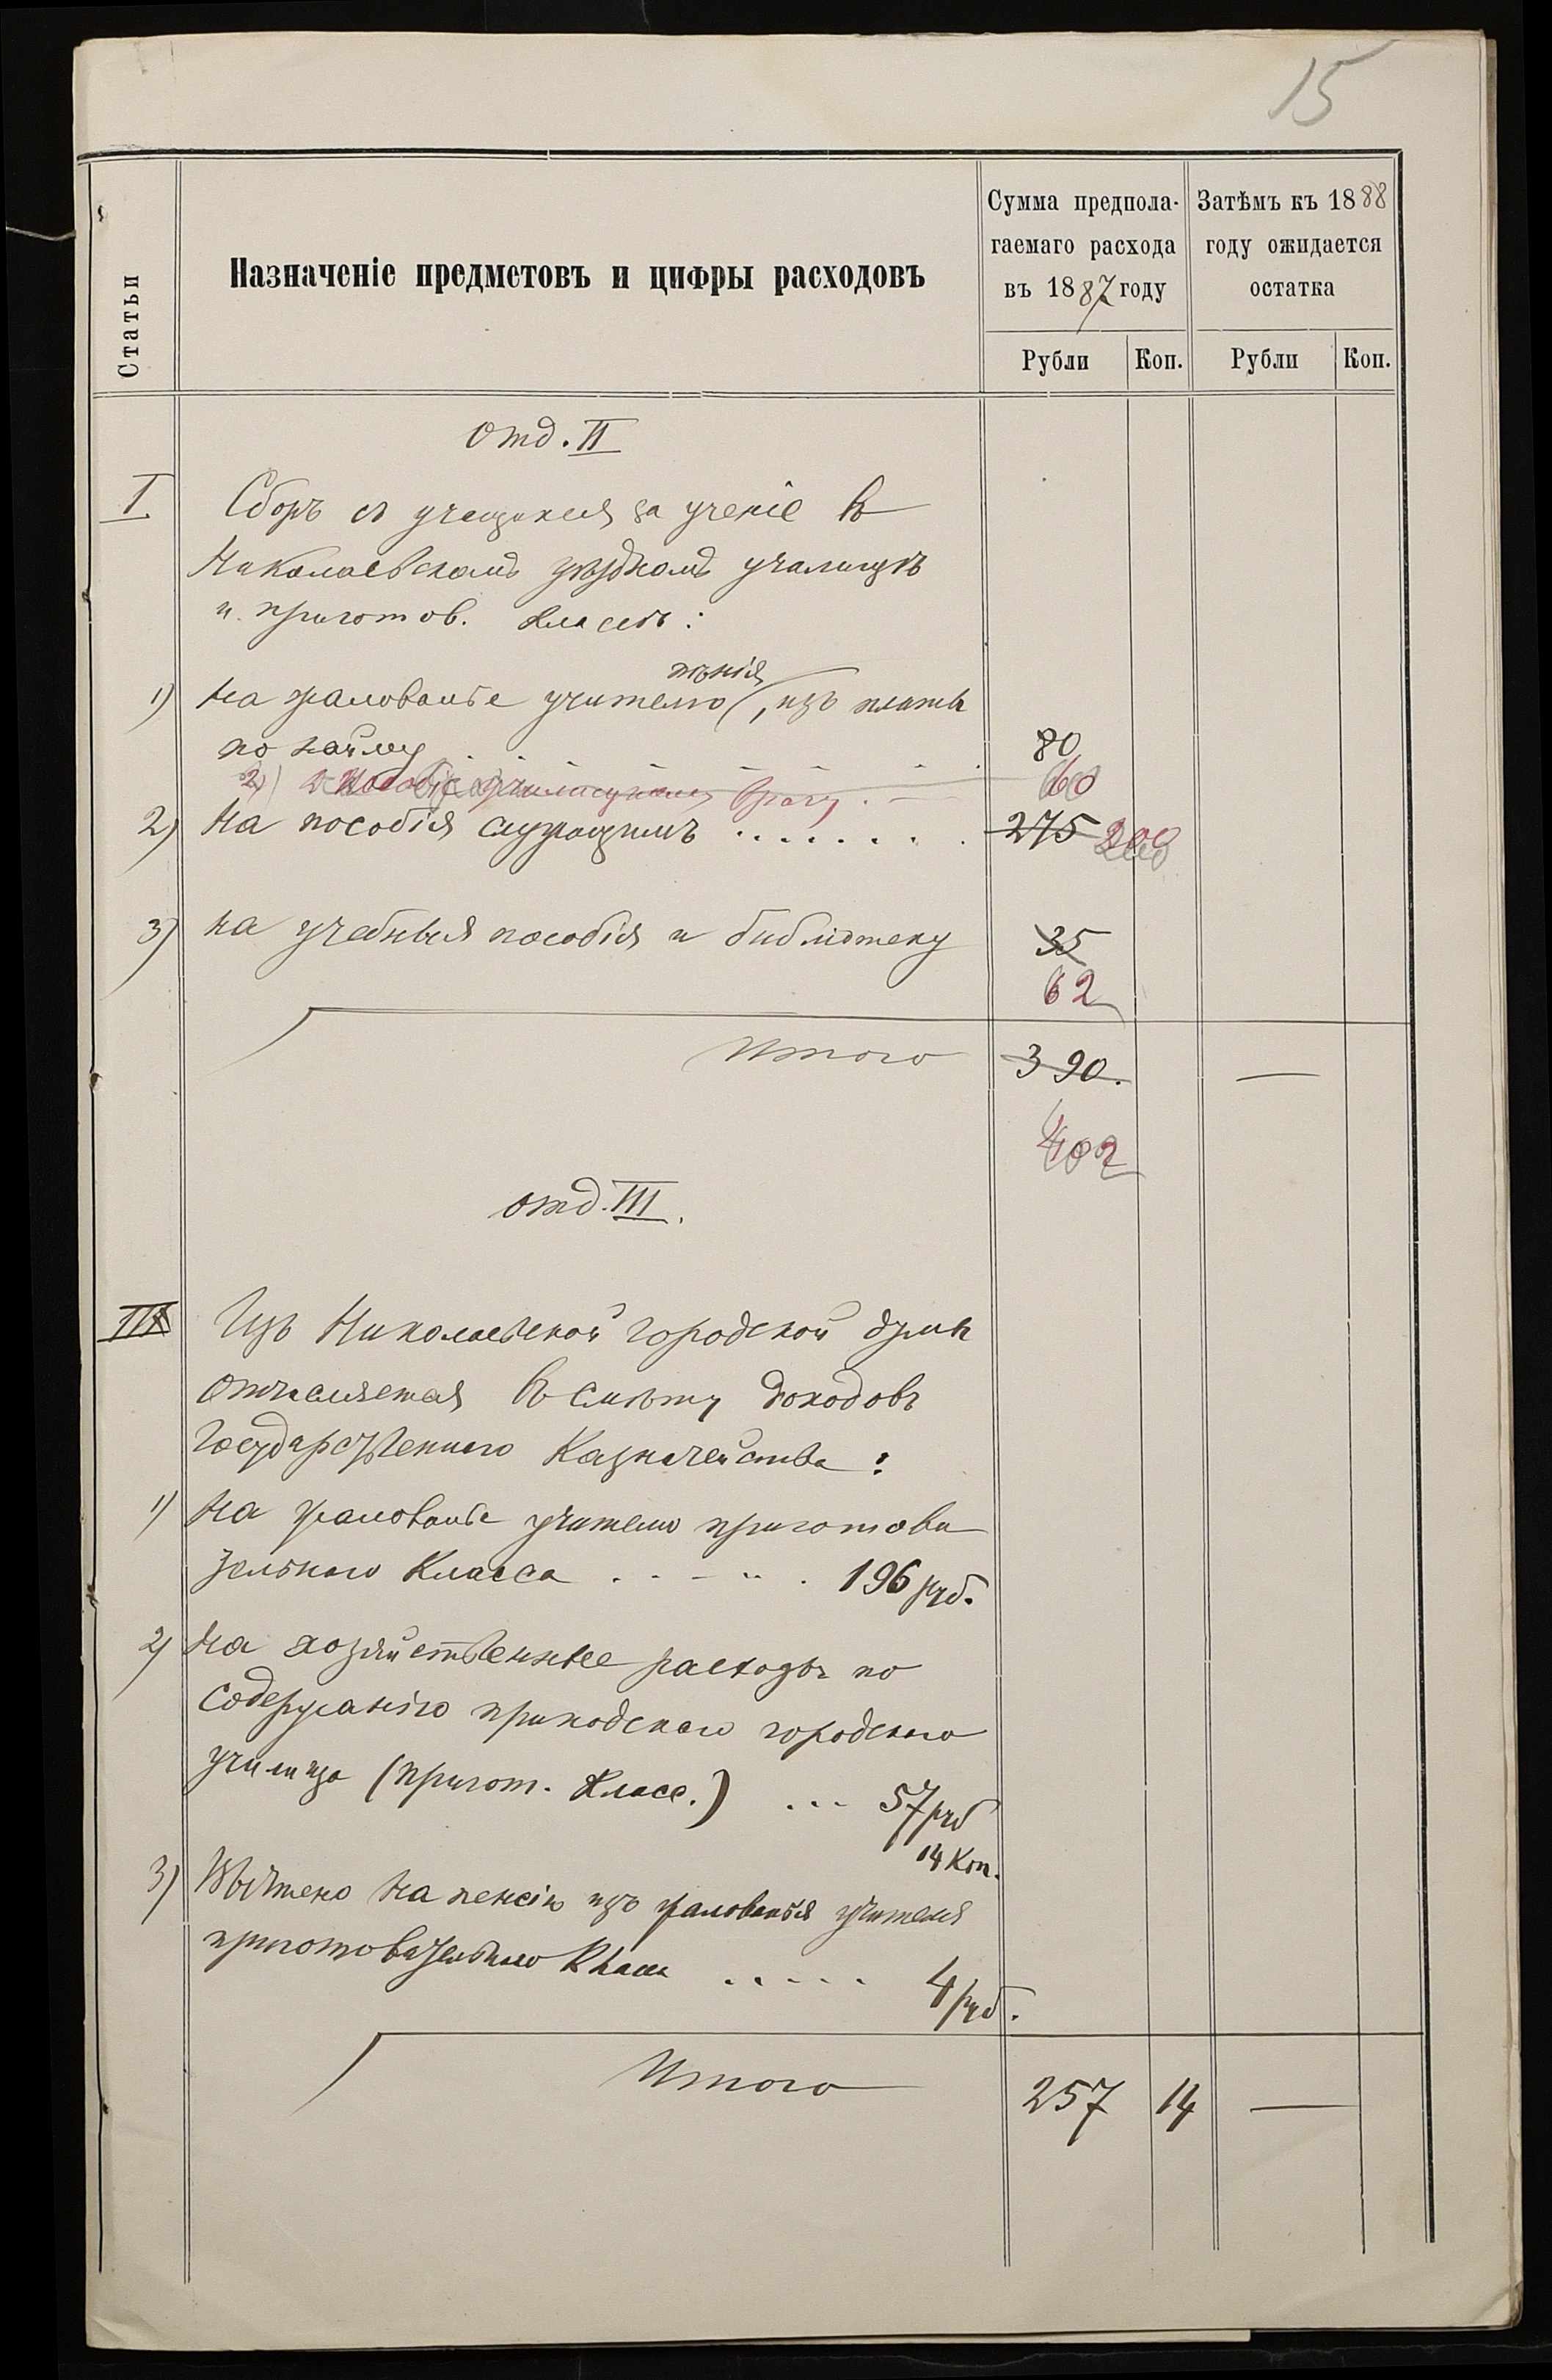 15
Статьи
Назначеніе предметовъ и цифры расходовъ
Сумма предпола-
гаемаго расхода
въ 1887 году
Затѣмъ къ 1888
году ожидается
остатка
Рубли Коп. Рубли Коп.
Отд. II
I Сборъ съ учащихся за ученіе въ
Николаевскомъ уѣздномъ училищѣ
и приготов. классѣ:
пѣнія
1) На жалованье учителю, изъ платы
по найму 80
2) Пособіе училищному врачу 60
2) На пособія служащимъ . . . . . . . 275 200
3) на учебныя пособія и библіотеку 35
62
Итого 390. —
402
Отд. III.
III Изъ Николаевской городской думы
отчисляется въ смѣту доходовъ
Государственнаго Казначейства:
1) На жалованье учителю приготови
тельнаго класса . . - - . . 196 руб.
2) На хозяйственные расходы по
содержанію приходскаго городскаго
училища (пригот. класс.) ... 57 руб
14 коп.
3) Вычтено на пенсію изъ жалованья учителя
приготовительнаго класса . . . . . 4 руб.
Итого 257 14 —